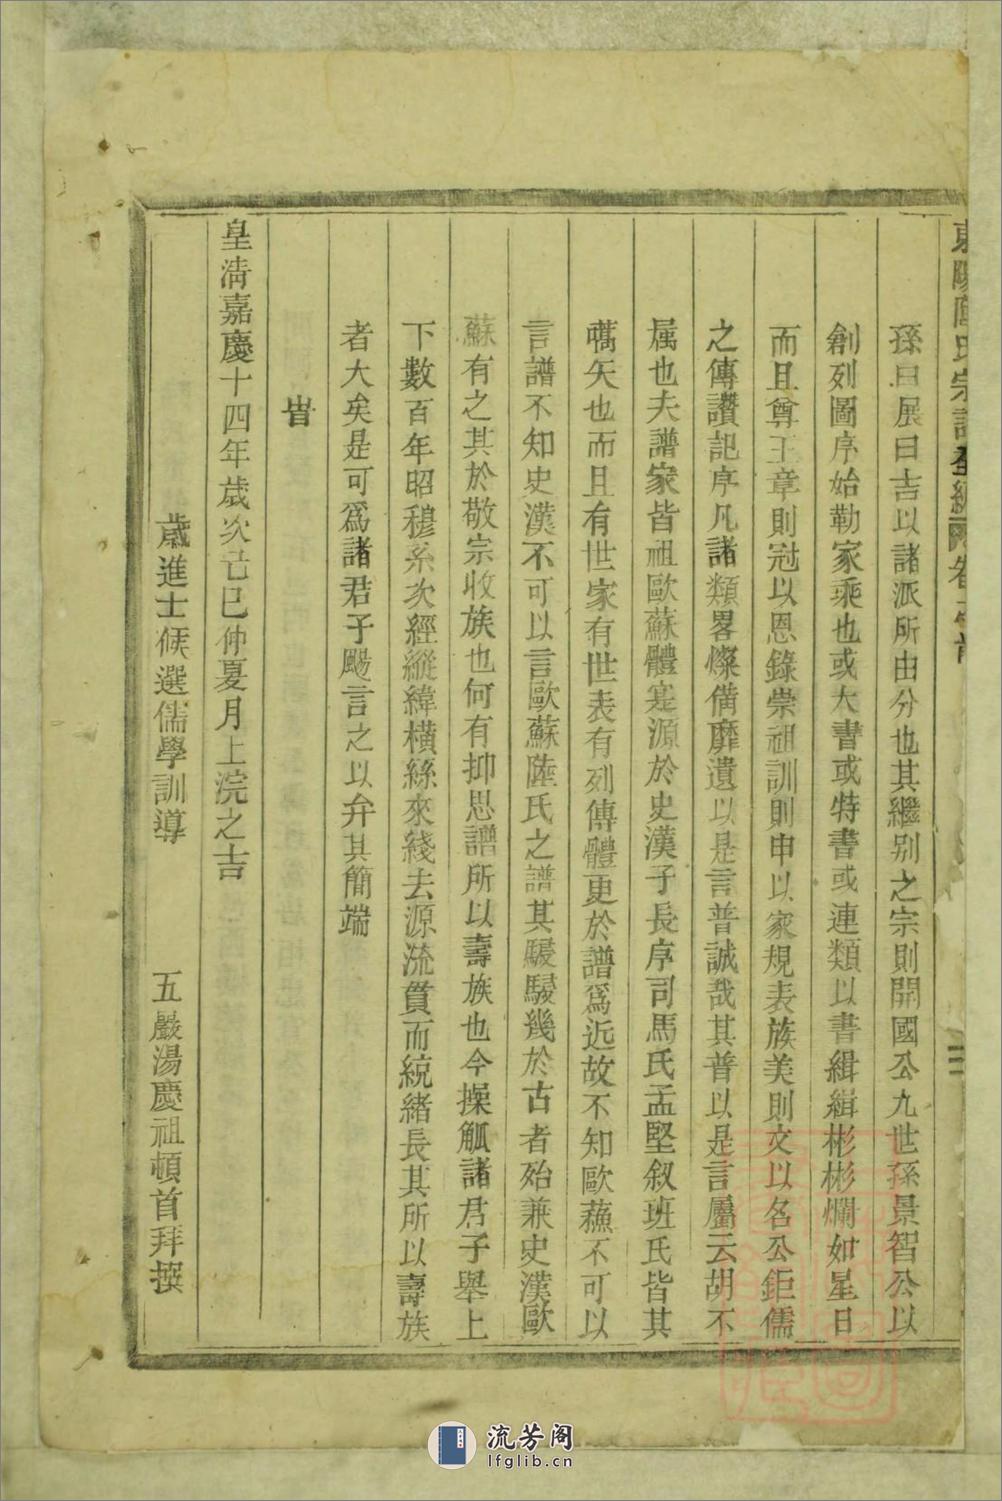 東陽陸氏宗譜全編 卷之首
二
孫曰展曰吉以諸派所由分也其繼别之宗則開國公九世孫景智公以
創列圖序始勒家乘也或大書或特書或連類以書緝緝彬彬爛如星日
而且尊王章則冠以恩錄崇祖訓則申以家規表族美則文以名公鉅儒
之傳讚記序凡諸類畧燦備靡遺以是言普誠哉其普以是言屬云胡不
属也夫譜家皆祖歐蘇體寔源於史漢子長序司馬氏孟堅叙班氏皆其
嚆矢也而且有世家有世表有列傳體更於譜爲近故不知歐蘓不可以
言譜不知史漢不可以言歐蘇陸氏之譜其駸駸幾於古者殆兼史漢歐
蘇有之其於敬宗收族也何有抑思譜所以壽族也今操觚諸君子舉上
下數百年昭穆系次經縱緯橫絲來綫去源流貫而統緒長其所以壽族
者大矣是可爲諸君子颺言之以弁其簡端
旹
皇淸嘉慶十四年歲次己巳仲夏月上浣之吉
歲進士候選儒學訓導 五巖湯慶祖頓首拜撰
流芳阁
lfglib.cn